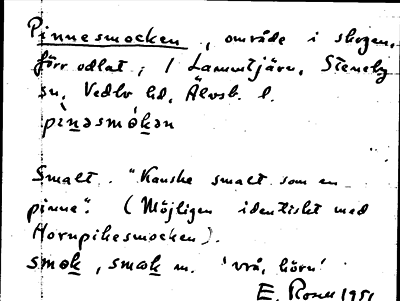 Pinnesmocken, område i skogen,
förr odlat, i Lammtjärn, Steneby
sn, Vedbo hd, Älvsb. l.
pi̱nəsmo̱kən
Smalt. "Kanske smalt som en
pinne". (Möjligen identiskt med
Hornpikesmocken).
smək, smok m. 'vrå, hörn'
E. Rosell 1951